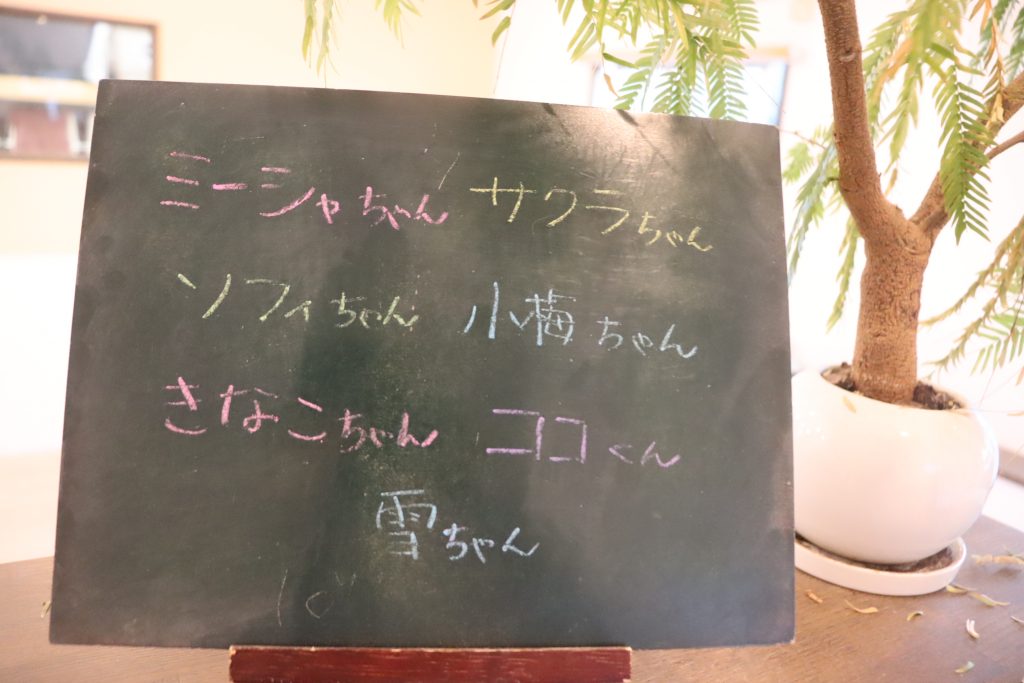 ミーシャちゃん サクラちゃん
ソフィちゃん 小梅ちゃん
きなこちゃん ココくん
雪ちゃん